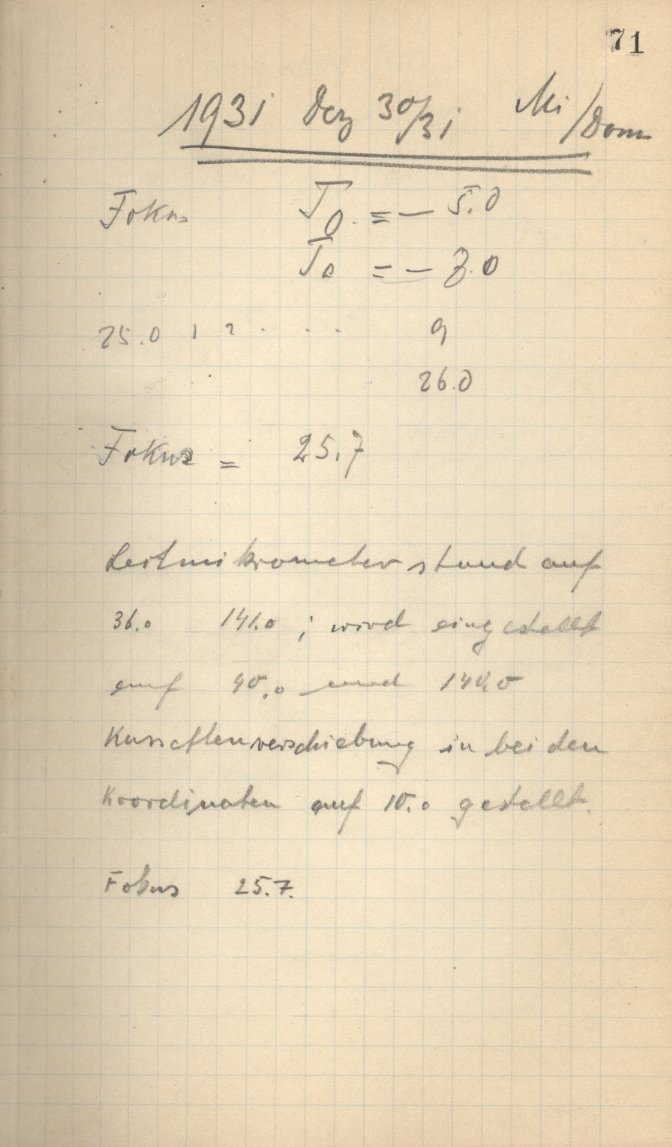 71
1931 Dez 30/31 Mi/Donn
Fokus T0 = – 5.0
= – 7.0
25.0 1 2 . . . 9
26.0
Fokus = 25.7
Leitmikrometer stand auf
36.0 141.0 ; wird eingestellt
auf 40.0 und 140.0
Kassettenverschiebung in beiden
Koordinaten auf 10.0 gestellt.
Fokus 25.7.